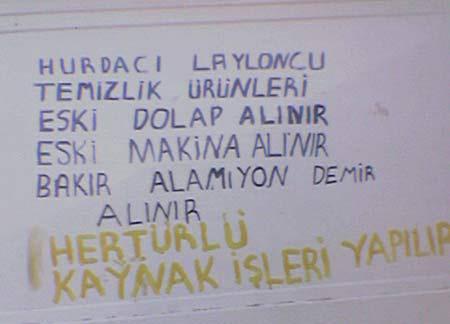 HURDACI LAYLONCU
TEMİZLİK ÜRÜNLERİ
ESKİ DOLAP ALINIR
ESKİ MAKİNA ALINIR
BAKIR ALAMİYON DEMİR
ALINIR
HERTÜRLÜ
KAYNAK İŞLERİ YAPILIR